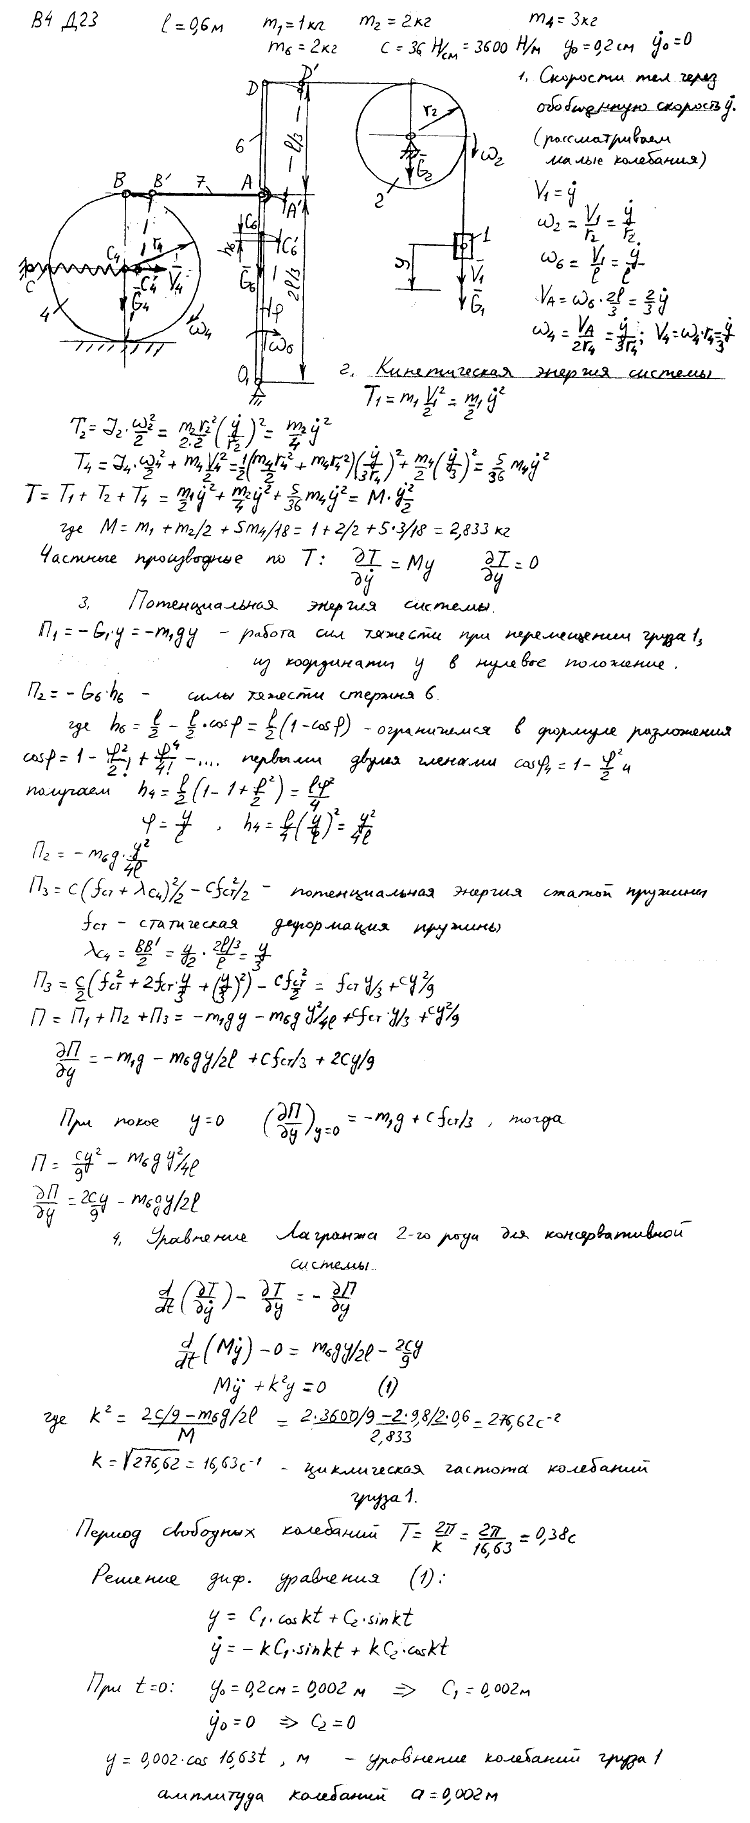 В4 Д23 l = 0,6м m₁ = 1кг m₂ = 2кг m₄ = 3кг
m₆ = 2кг c = 36 Н/см = 3600 Н/м y₀ = 0,2см ẏ₀ = 0
D D' 6 l/3 r₂ ω₂ G₂ 2
B B' 7 A A' C₆ C₆' h₆ G₆ 2l/3 φ ω₆ O₁
C C₄ C₄' r₄ V₄ G₄ 4 ω₄
1 y V₁ G₁
1. Скорости тел через
обобщенную скорость ẏ.
(рассматриваем
малые колебания)
V₁ = ẏ
ω₂ = V₁/r₂ = ẏ/r₂
ω₆ = V₁/l = ẏ/l
V_A = ω₆·2l/3 = 2/3 ẏ
ω₄ = V_A/2r₄ = ẏ/3r₄; V₄ = ω₄·r₄ = ẏ/3
2. Кинетическая энергия системы
T₁ = m₁V₁²/2 = m₁/2 ẏ²
T₂ = J₂·ω₂²/2 = m₂r₂²/2·2 (ẏ/r₂)² = m₂/4 ẏ²
T₄ = J₄·ω₄²/2 + m₄V₄²/2 = 1/2(m₄r₄²/2 + m₄r₄²)(ẏ/3r₄)² + m₄/2(ẏ/3)² = 5/36 m₄ẏ²
T = T₁ + T₂ + T₄ = m₁/2 ẏ² + m₂/4 ẏ² + 5/36 m₄ẏ² = M·ẏ²/2
где M = m₁ + m₂/2 + 5m₄/18 = 1 + 2/2 + 5·3/18 = 2,833 кг
Частные производные по T: ∂T/∂ẏ = Mẏ ∂T/∂y = 0
3. Потенциальная энергия системы.
П₁ = -G₁·y = -m₁gy - работа сил тяжести при перемещении груза 1,
из координаты y в нулевое положение.
П₂ = -G₆·h₆ - силы тяжести стержня 6.
где h₆ = l/2 - l/2·cosφ = l/2(1-cosφ) - ограничимся в формуле разложения
cosφ = 1 - φ²/2! + φ⁴/4! - .... первыми двумя членами cosφ₄ = 1 - φ²/2 и
получаем h₄ = l/2(1 - 1 + φ²/2) = lφ²/4
φ = y/l , h₄ = l/4(y/l)² = y²/4l
П₂ = -m₆g·y²/4l
П₃ = c(fст + λc₄)²/2 - cfст²/2 - потенциальная энергия сжатой пружины
fст - статическая деформация пружины
λc₄ = BB'/2 = y/2·2l/3/l = y/3
П₃ = c/2(fст² + 2fст·y/3 + (y/3)²) - cfст²/2 = fст y/3 + cy²/9
П = П₁ + П₂ + П₃ = -m₁gy - m₆g y²/4l + cfст·y/3 + cy²/9
∂П/∂y = -m₁g - m₆gy/2l + cfст/3 + 2cy/9
При покое y = 0 (∂П/∂y)y=0 = -m₁g + cfст/3 , тогда
П = cy²/9 - m₆g y²/4l
∂П/∂y = 2cy/9 - m₆gy/2l
4. Уравнение Лагранжа 2-го рода для консервативной
системы.
d/dt(∂T/∂ẏ) - ∂T/∂y = -∂П/∂y
d/dt(Mẏ) - 0 = m₆gy/2l - 2cy/9
Mÿ + k²y = 0 (1)
где k² = (2c/9 - m₆g/2l)/M = (2·3600/9 - 2·9,8/2·0,6)/2,833 = 276,62 с⁻²
k = √276,62 = 16,63 с⁻¹ - циклическая частота колебаний
груза 1.
Период свободных колебаний T = 2π/k = 2π/16,63 = 0,38с
Решение диф. уравнения (1):
y = C₁·coskt + C₂·sinkt
ẏ = -kC₁·sinkt + kC₂·coskt
При t=0: y₀ = 0,2см = 0,002 м ⇒ C₁ = 0,002м
ẏ₀ = 0 ⇒ C₂ = 0
y = 0,002·cos 16,63t , м - уровнение колебаний груза 1
амплитуда колебаний a = 0,002м